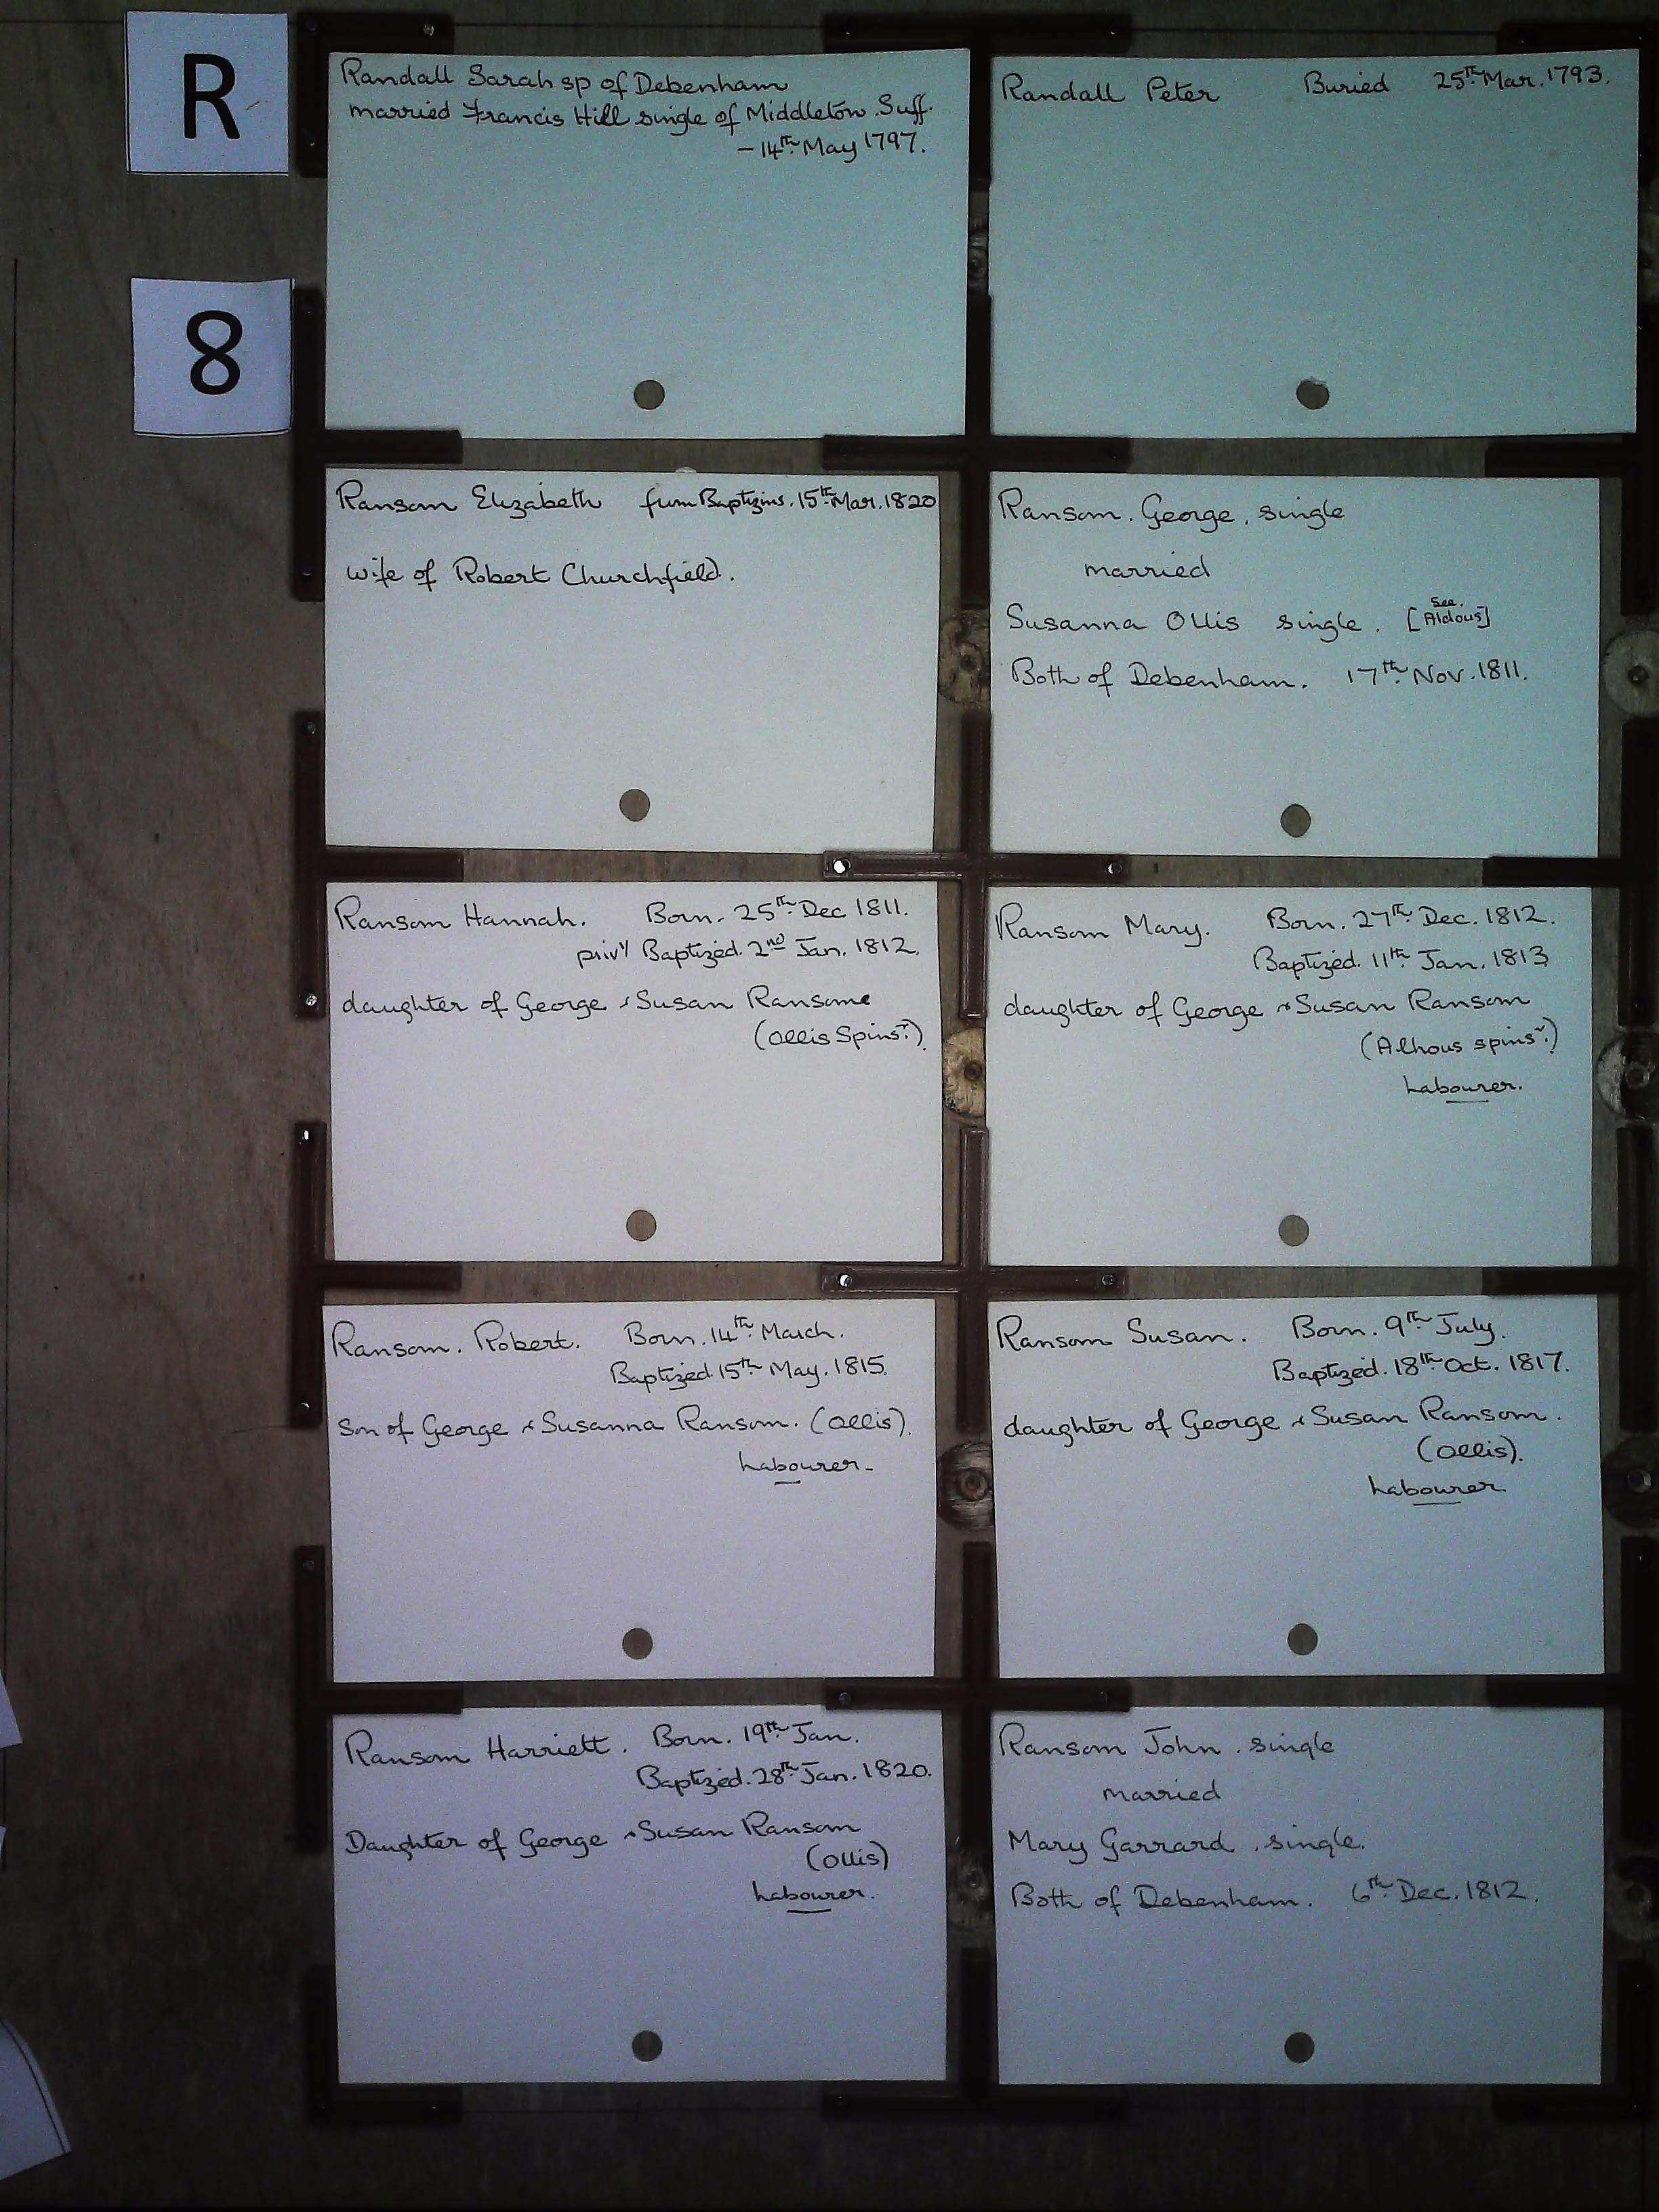 R
8
Randall Sarah sp of Debenham
married Francis Hill single of Middleton. Suff.
- 14th. May 1797.
Randall Peter Buried 25th. Mar. 1793.
Ransom Elizabeth Baptizms. 15th. Mar. 1820
wife of Robert Churchfield.
Ransom. George. single
married
See.
Susanna Ollis single. [Aldous]
Both of Debenham. 17th. Nov. 1811.
Ransom Hannah. Born. 25th. Dec 1811.
privy Baptized. 2nd Jan. 1812.
daughter of George & Susan Ransome
(Ollis Spinsr.).
Ransom Mary. Born. 27th. Dec. 1812.
Baptized. 11th. Jan. 1813
daughter of George & Susan Ransom
(Alhous spinsr.)
Labourer.
Ransom. Robert. Born. 14th. March.
Baptized. 15th. May. 1815.
Son of George & Susanna Ransom. (Ollis).
Labourer-
Ransom Susan. Born. 9th. July.
Baptized. 18th. Oct. 1817.
daughter of George & Susan Ransom.
(Ollis).
Labourer
Ransom Harriett. Born. 19th. Jan.
Baptized. 28th. Jan. 1820.
Daughter of George & Susan Ransom
(Ollis)
Labourer.
Ransom John. single
married
Mary Garrard. single.
Both of Debenham. 6th. Dec. 1812.